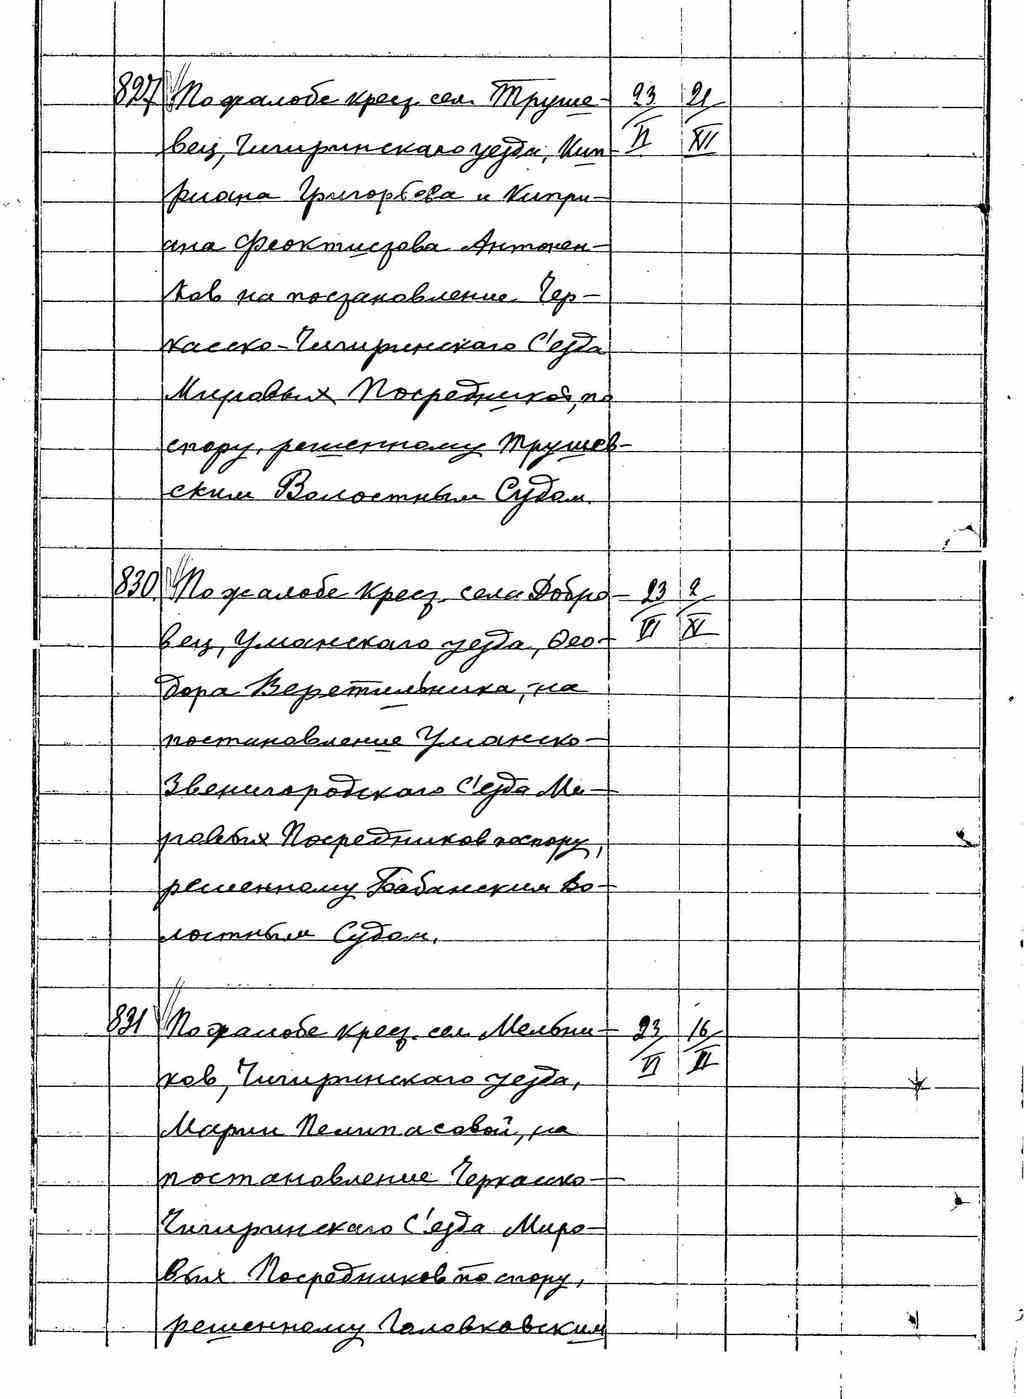 827 По жалобе крест. сел. Труше- 23 21
вец, Чигиринскаго уезда, Кип- VI XII
риана Григорьева и Кипри-
ана Феоктистова Антонен-
ков на постановление Чер-
касско-Чигиринскаго С'езда
Мировых Посредников, по
спору, решенному Трушев-
ским Волостным Судом.
830. По жалобе крест. села Добро- 23 2
вец, Уманскаго уезда, Фео- VI XI
дора Веретильника, на
постановление Уманско-
Звенигородскаго С'езда Ми-
ровых Посредников по спору,
решенному Бабанским Во-
лостным Судом.
831 По жалобе крест. сел Мельни- 23 16
ков, Чигиринскаго уезда, VI
Марии, на
постановление Черкасско-
Чигиринскаго С'езда Миро-
вых Посредников по спору,
решенному Головковским